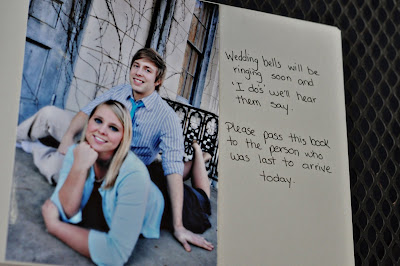 Wedding bells will be
ringing soon and
'I do's' we'll hear
them say.
Please pass this book
to the person who
was last to arrive
today